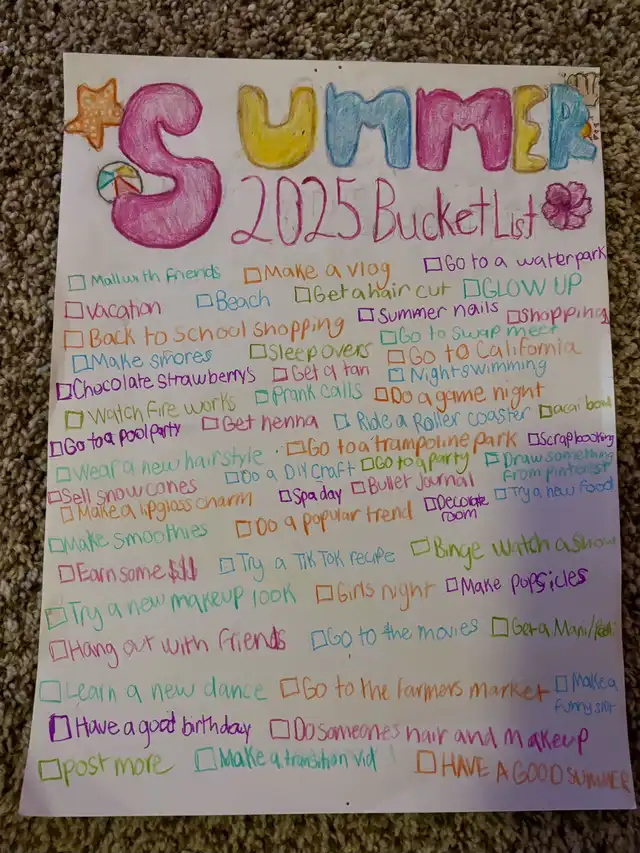 SUMMER
2025 Bucket List
Mall with friends Make a vlog Go to a waterpark
Vacation Beach Get a hair cut GLOW UP
Back to school shopping Summer nails Shopping
Make smores Sleepovers Go to swap meet
Go to California
Chocolate strawberrys Get a tan Nightswimming
Watch fire works Prank calls Do a game night
Go to a poolparty Get henna Ride a Roller coaster acai bowl
Wear a new hairstyle Go to a trampoline park Scrapbooking
Do a DIY Craft Go to a party Draw something
from pinterest
Sell snow cones Spa day Bullet Journal Try a new food
Make a lipgloss charm Do a popular trend Decorate
room
Make smoothies
Earn some $$$ Try a TikTok recipe Binge watch a show
Try a new makeup look Girls night Make popsicles
Hang out with friends Go to the movies Get a Mani/
Learn a new dance Go to the farmers market Make a
funny
Have a good birthday Do someones hair and makeup
post more Make a transition vid HAVE A GOOD SUMMER